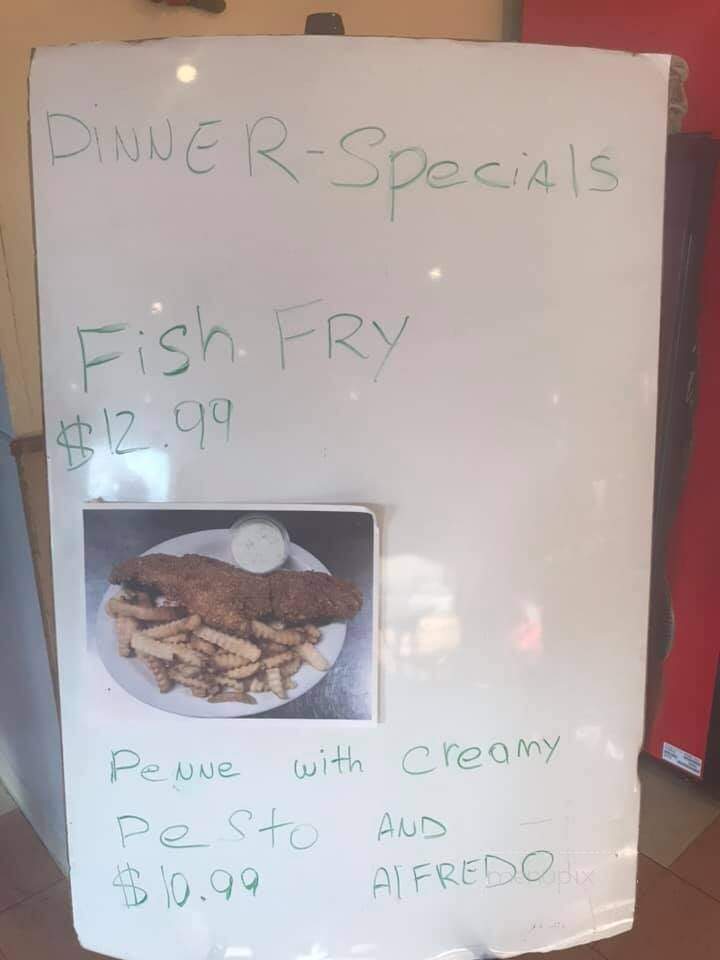 DINNER-SpeciAlS
Fish FRY
$12.99
Penne with creamy
Pesto AND
$10.99 AlFREDO
menupix